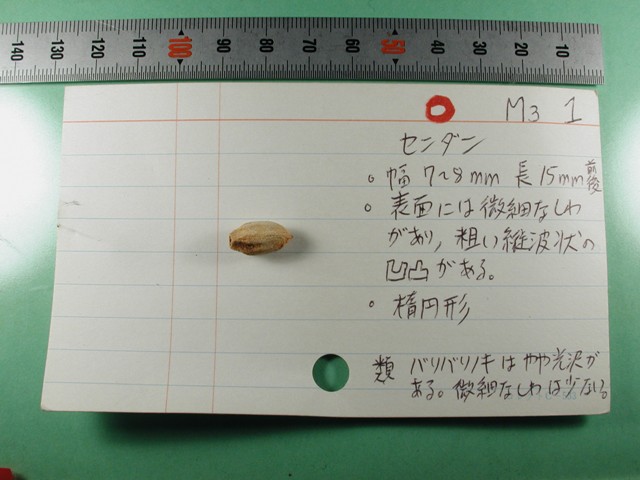 140 130 120 110 100 90 80 70 60 50 40 30 20 10
M3 1
センダン
。幅 7~8mm 長 15mm前後
。表面には微細なしわ
があり、粗い縦波状の
凹凸がある。
。楕円形
類 バリバリノキ はやや光沢が
ある。微細なしわは少ない。